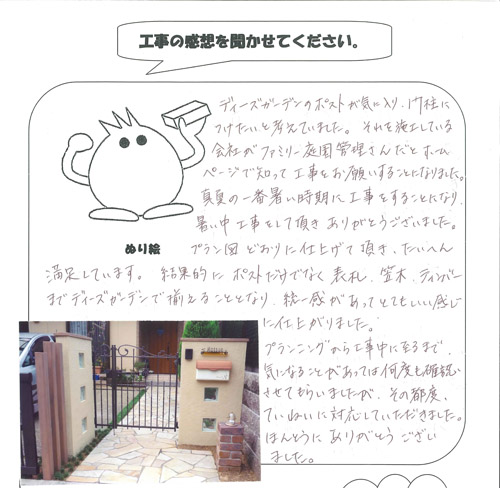 工事の感想を聞かせてください。
ディーズガーデンのポストが気に入り、門柱に
つけたいと考えていました。それを施工している
会社がファミリー庭園管理さんだとホーム
ページで知って工事をお願いすることになりました。
真夏の一番暑い時期に工事をすることになり、
暑い中工事をして頂きありがとうございました。
プラン図どおりに仕上げて頂き、たいへん
ぬり絵
満足しています。結果的にポストだけでなく表札、笠木、ティンバー
までディーズガーデンで揃えることとなり、統一感があってとてもいい感じ
に仕上がりました。
プランニングから工事中に至るまで、
気になることがあっては何度も確認
させてもらいましたが、その都度、
ていねいに対応していただきました。
ほんとうにありがとうござい
ました。